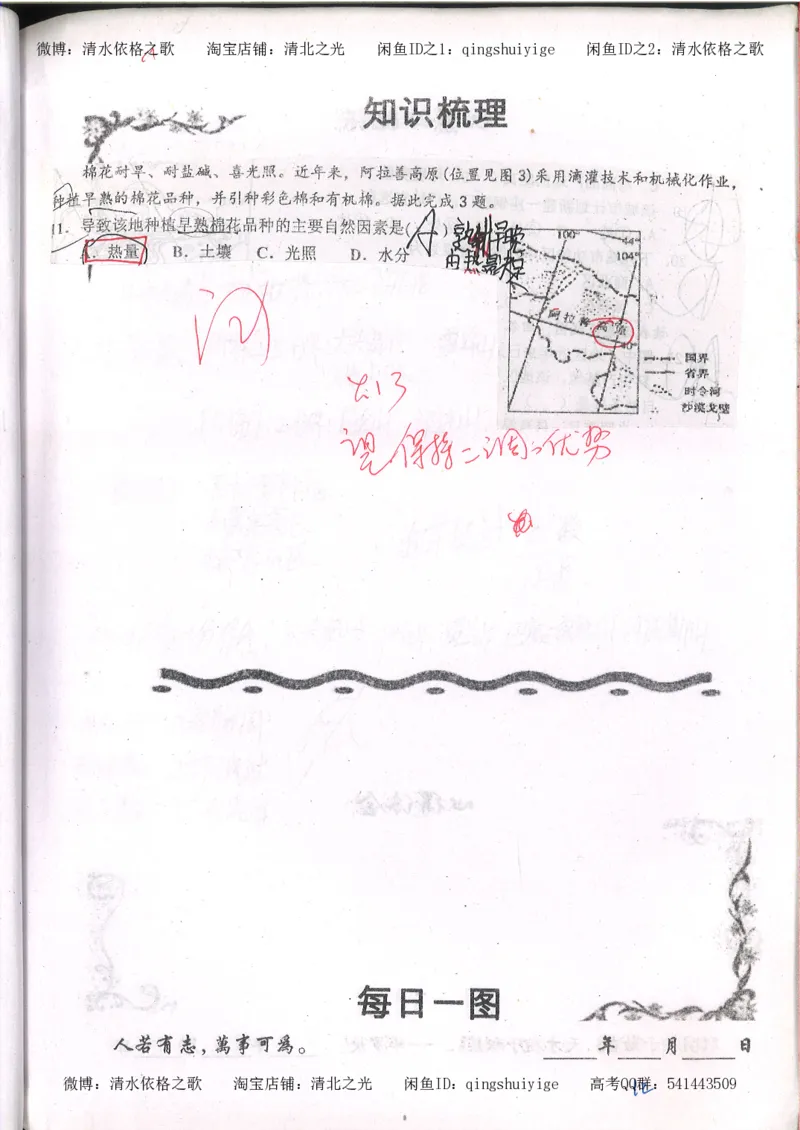 微博：清水依格之歌 淘宝店铺：清北之光 闲鱼ID之1：qingshuiyige 闲鱼ID之2：清水依格之歌
知识梳理
棉花耐旱、耐盐碱、喜光照。近年来，阿拉善高原(位置见图3)采用滴灌技术和机械化作业，
种植早熟的棉花品种，并引种彩色棉和有机棉。据此完成3题。
11. 导致该地种植早熟棉花品种的主要自然因素是( A )
A. 热量 B. 土壤 C. 光照 D. 水分
100°
44°
104°
阿拉善高原
40°
国界
省界
时令河
沙漠戈壁
保持二调 优势
每日一图
人若有志，萬事可為。
年 月 日
微博：清水依格之歌 淘宝店铺：清北之光 闲鱼ID：qingshuiyige 高考QQ群：541443509